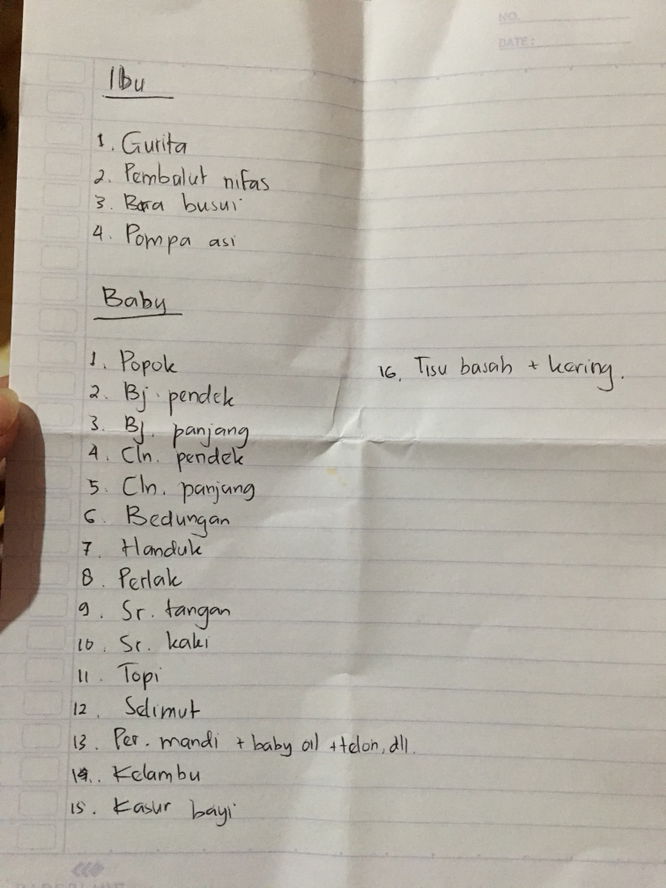 NO.
DATE:
Ibu
1. Gurita
2. Pembalut nifas
3. Bra busui
4. Pompa asi
Baby
1. Popok
2. Bj. pendek
3. Bj. panjang
4. Cln. pendek
5. Cln. panjang
6. Bedungan
7. Handuk
8. Perlak
9. Sr. tangan
10. Sr. kaki
11. Topi
12. Selimut
13. Per. mandi + baby oil + telon, dll.
14. Kelambu
15. Kasur bayi
16. Tisu basah + kering.